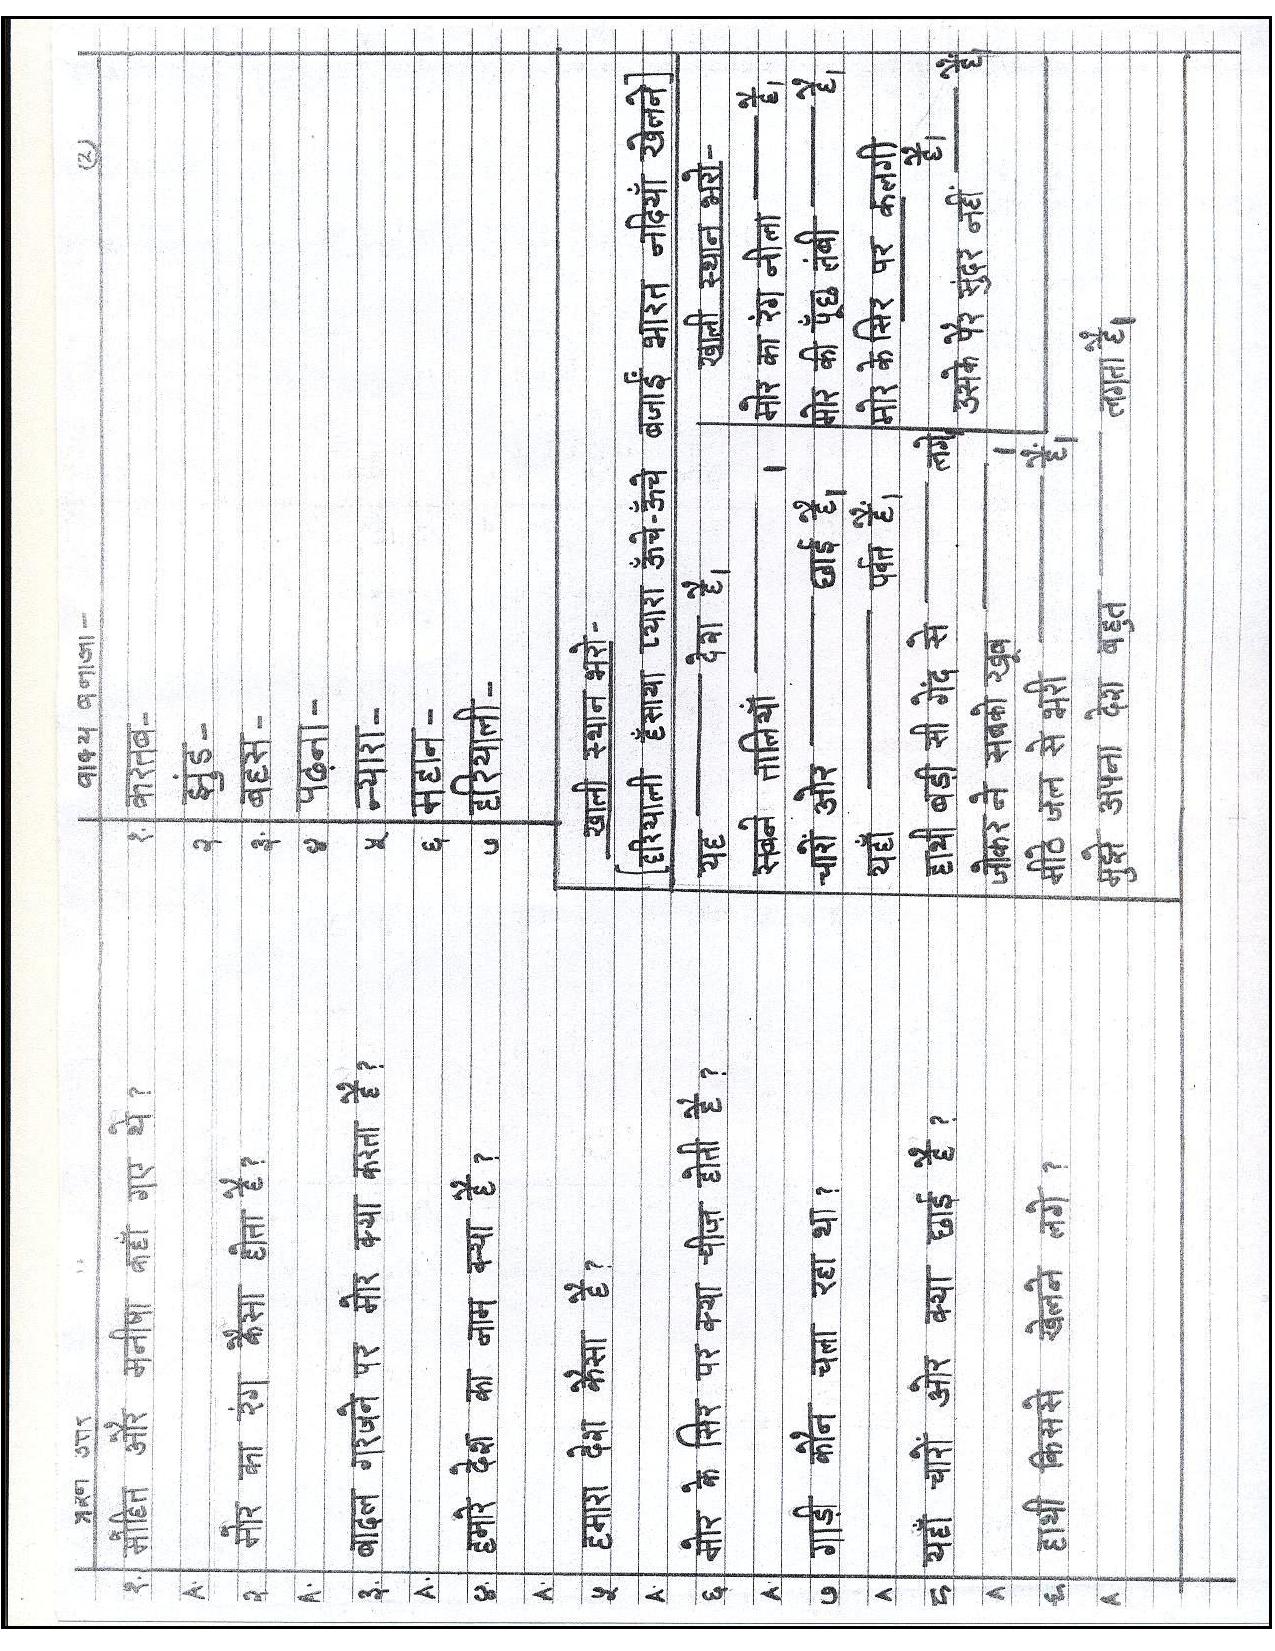 प्रश्न उत्तर
१. मोहित और मनीषा कहाँ गए थे ?
A.
२ मोर का रंग कैसा होता है ?
A.
३. बादल गरजने पर मोर क्या करता है ?
A.
४. हमारे देश का नाम क्या है ?
A.
५ हमारा देश कैसा है ?
A.
६ मोर के सिर पर क्या चीज़ होती है ?
A.
७ गाड़ी कौन चला रहा था ?
A
८ यहाँ चारों ओर क्या छाई है ?
A
९. हाथी किससे खेलने लगे ?
A
वाक्य बनाओ - (2)
१. करतब-
२ झुंड-
३. बहस-
४ पढ़ना-
५ न्यारा-
६ महान-
७ हरियाली-
खाली स्थान भरो-
[हरियाली हँसाया प्यारा ऊँचे-ऊँचे बजाईं भारत नदियाँ खेलने]
यह ——— देश है।
सबने तालियाँ ——— ।
चारों ओर ——— छाई है।
यहाँ ——— पर्वत हैं।
हाथी बड़ी सी गेंद से ——— लगे
जोकर ने सबको खूब ——— ।
मीठे जल से भरी ——— हैं।
मुझे अपना देश बहुत ——— लगता है।
खाली स्थान भरो-
मोर का रंग नीला ——— है।
मोर की पूँछ लंबी ——— है।
मोर के सिर पर कलगी ——— है।
उसके पैर सुंदर नहीं ——— हैं।